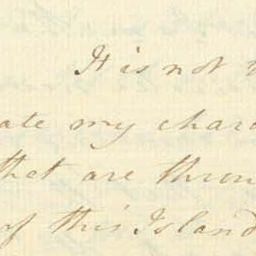 It is not
ate my chara
that are throw
of this Island